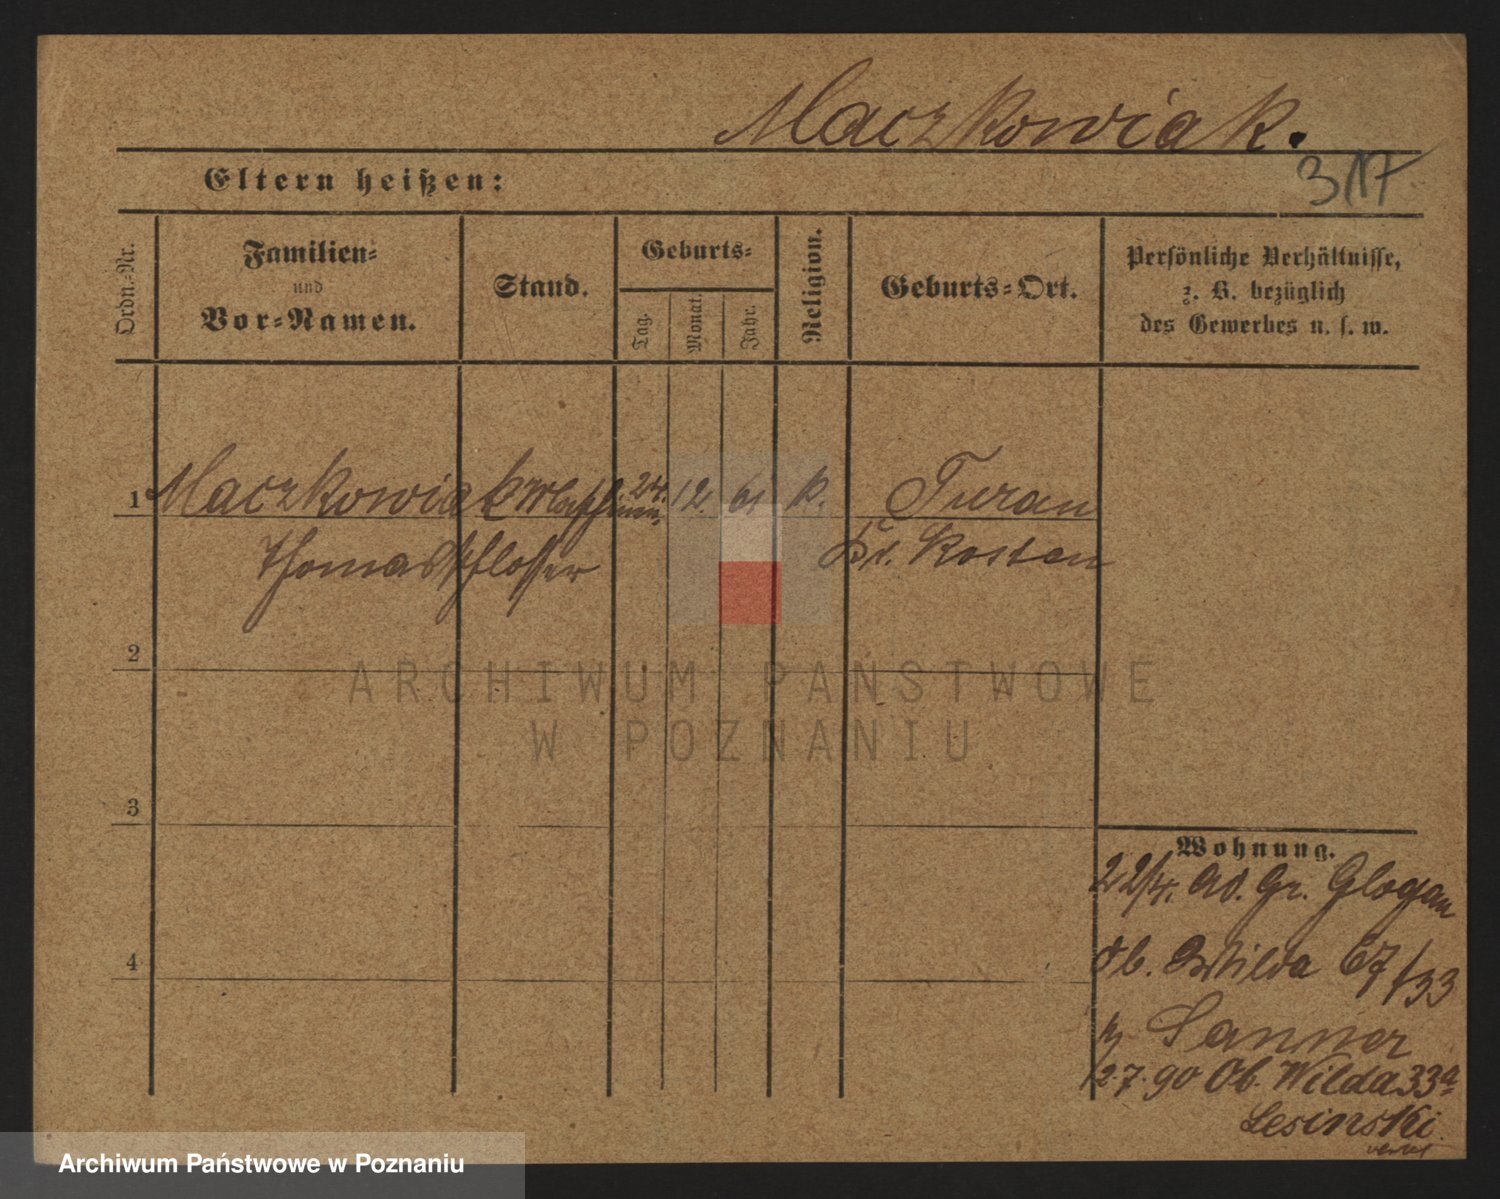 Maczkowiak.
317
Eltern heißen:
Ordn.-Nr.
Familien-
und
Vor-Namen.
Stand.
Geburts-
Tag.
Monat.
Jahr.
Religion.
Geburts-Ort.
Persönliche Verhältnisse,
z. B. bezüglich
des Gewerbes u. s. w.
1
Maczkowiak 24. 12. 61 k. Turau
Thomas Kr. Kosten
2
3
4
Wohnung.
22/4. Gr. Glogau
Ob. Wilda 67/33
Sanner
12.7.90 Ob. Wilda 33a
Lesinski
ARCHIWUM PAŃSTWOWE
W POZNANIU
Archiwum Państwowe w Poznaniu